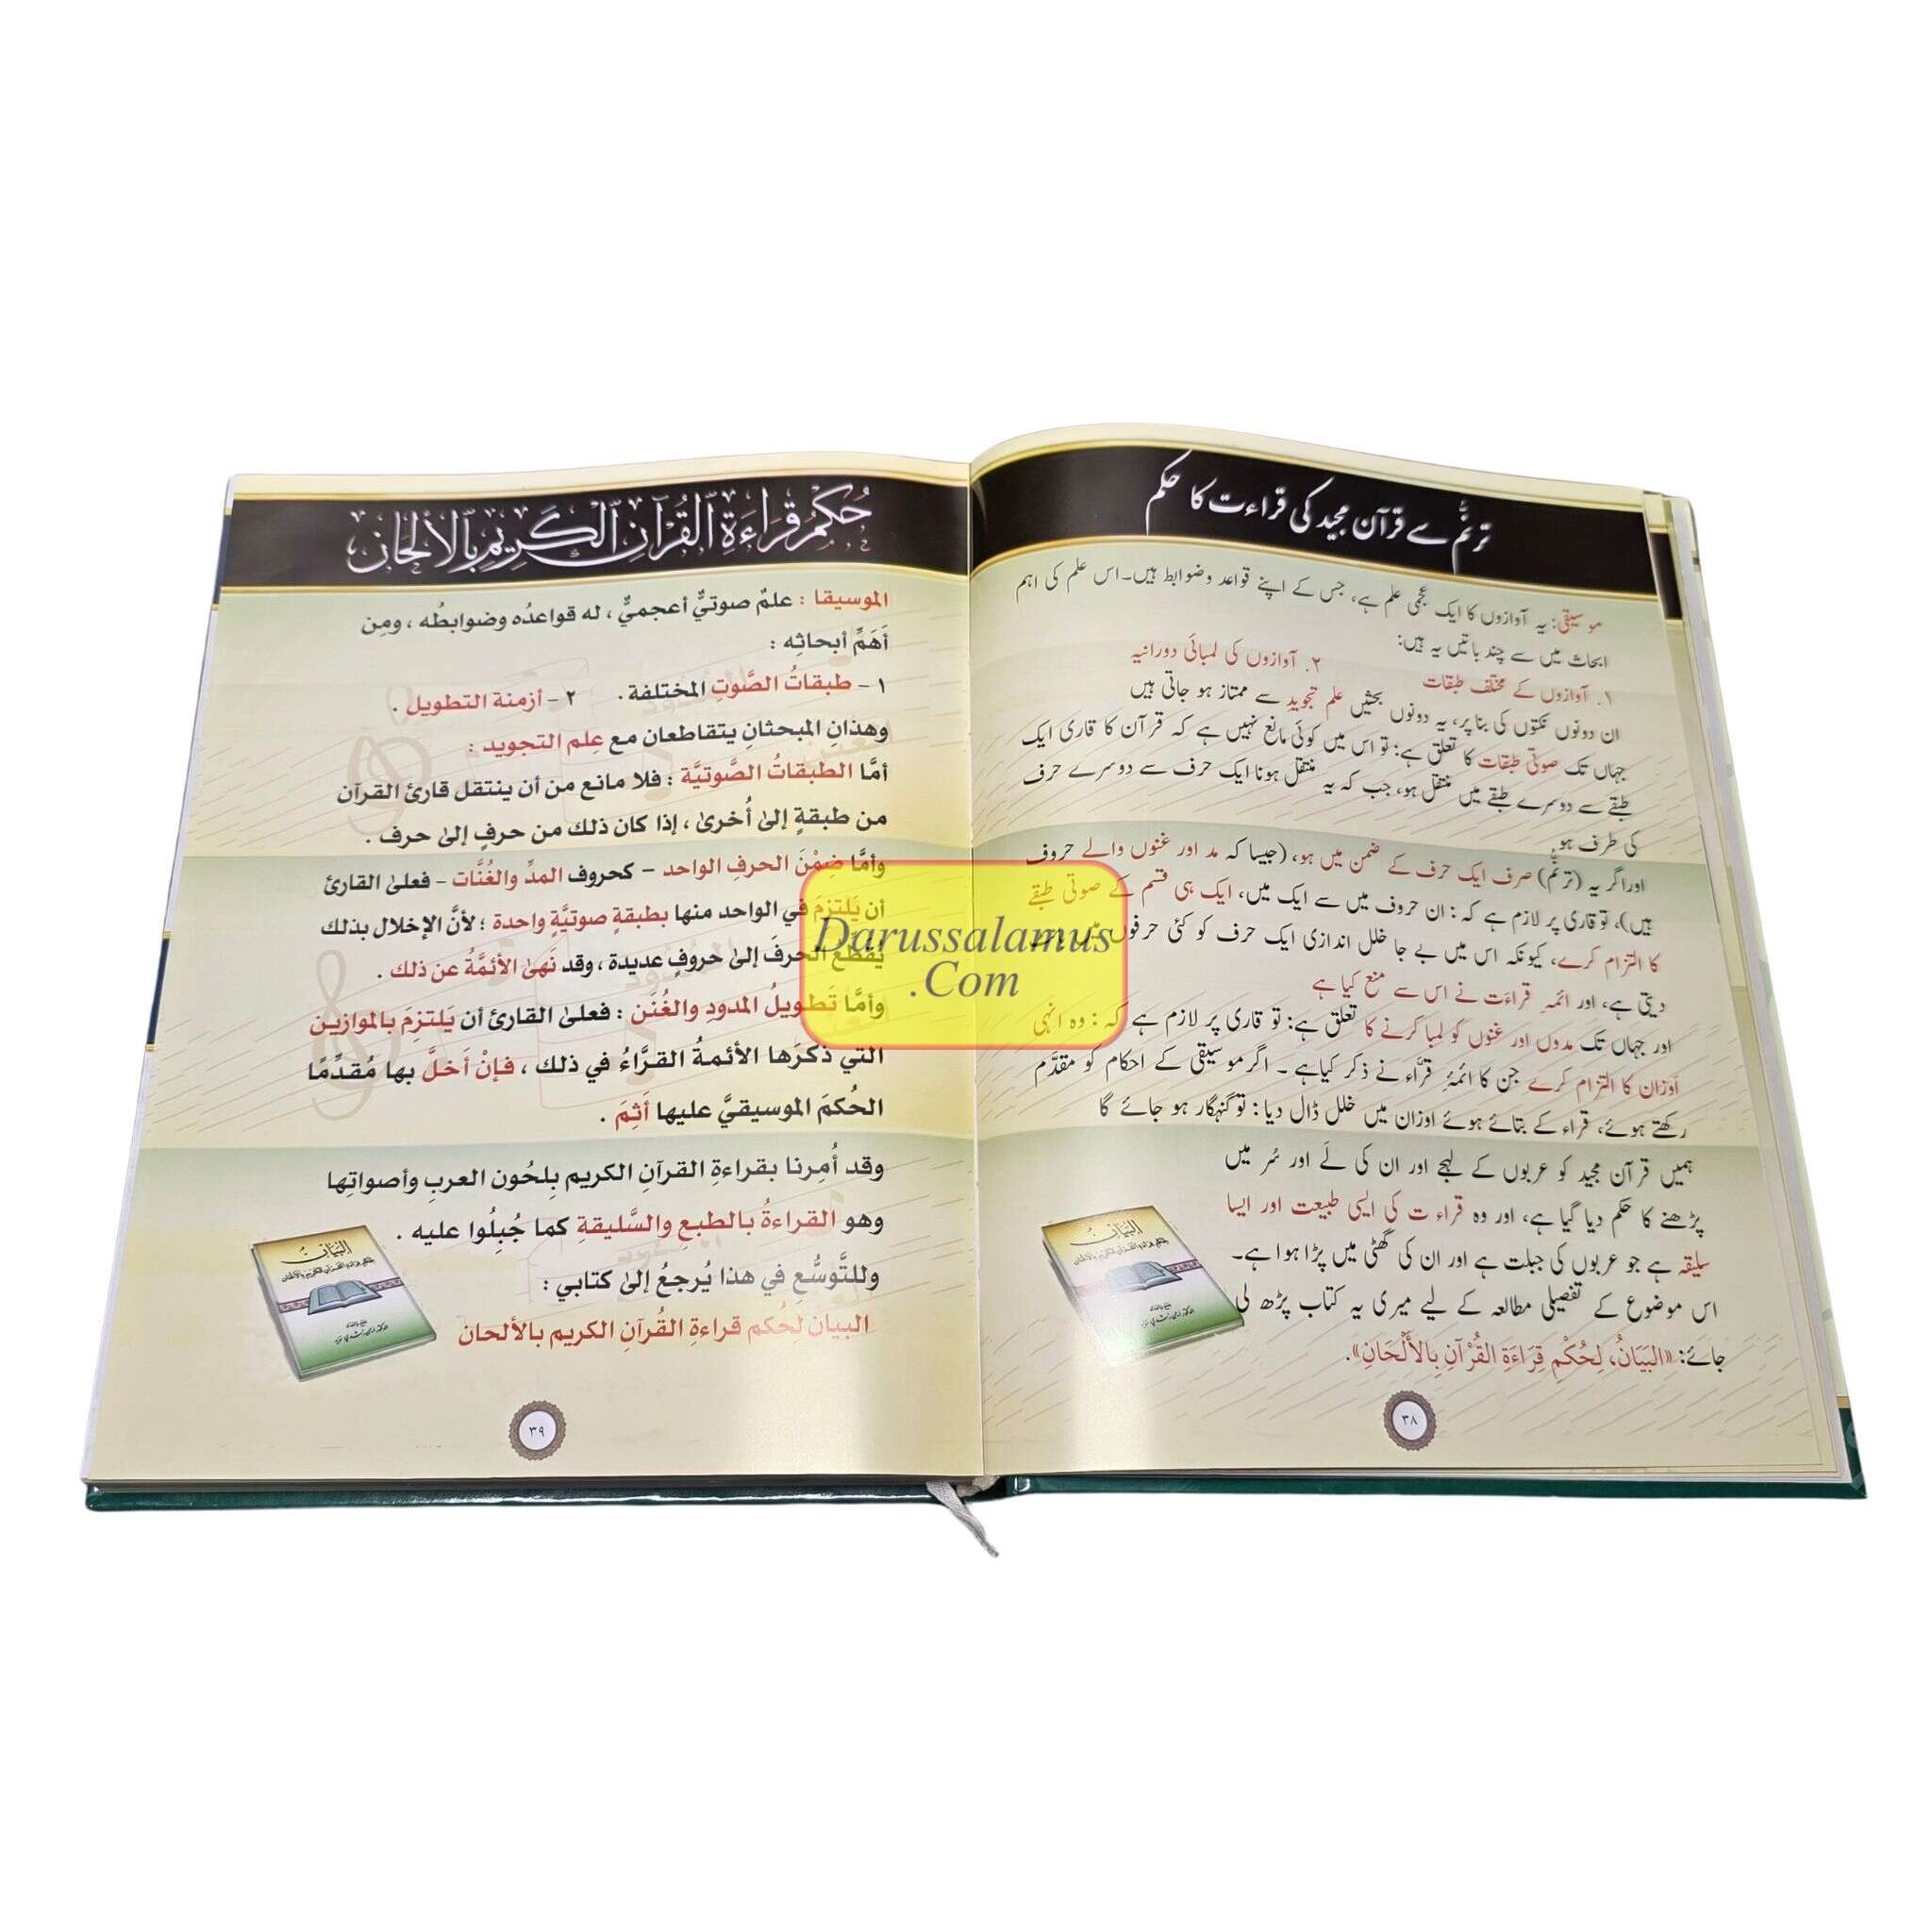 ترنّم سے قرآن مجید کی قراءت کا حکم
موسیقی: یہ آوازوں کا ایک عجمی علم ہے، جس کے اپنے قواعد وضوابط ہیں۔ اس علم کی اہم
ابحاث میں سے چند باتیں یہ ہیں:
۱. آوازوں کے مختلف طبقات ۲. آوازوں کی لمبائی دورانیہ
ان دونوں نکتوں کی بنا پر، یہ دونوں بحثیں علم تجوید سے ممتاز ہو جاتی ہیں
جہاں تک صوتی طبقات کا تعلق ہے: تو اس میں کوئی مانع نہیں ہے کہ قرآن کا قاری ایک
طبقے سے دوسرے طبقے میں منتقل ہو، جب کہ یہ منتقل ہونا ایک حرف سے دوسرے حرف
کی طرف ہو.
اور اگر یہ (ترنّم) صرف ایک حرف کے ضمن میں ہو، (جیسا کہ مد اور غنوں والے حروف
ہیں)، تو قاری پر لازم ہے کہ: ان حروف میں سے ایک میں، ایک ہی قسم کے صوتی طبقے
کا التزام کرے، کیونکہ اس میں بے جا خلل اندازی ایک حرف کو کئی حرفوں میں
دیتی ہے، اور ائمہ قراءت نے اس سے منع کیا ہے
اور جہاں تک مدوں اور غنوں کو لمبا کرنے کا تعلق ہے: تو قاری پر لازم ہے کہ: وہ انہی
اوزان کا التزام کرے جن کا ائمۂ قرّاء نے ذکر کیا ہے ۔ اگر موسیقی کے احکام کو مقدّم
رکھتے ہوئے، قراء کے بتائے ہوئے اوزان میں خلل ڈال دیا: تو گنہگار ہو جائے گا
ہمیں قرآن مجید کو عربوں کے لہجے اور ان کی لَے اور سُر میں
پڑھنے کا حکم دیا گیا ہے، اور وہ قراءت کی ایسی طبیعت اور ایسا
سلیقہ ہے جو عربوں کی جبلت ہے اور ان کی گھٹی میں پڑا ہوا ہے۔
اس موضوع کے تفصیلی مطالعہ کے لیے میری یہ کتاب پڑھ لی
جائے: «البَيَانُ، لِحُكْمِ قِرَاءَةِ القُرْآنِ بِالأَلْحَانِ».
٣٨
حُكْمُ قِرَاءَةِ القُرْآنِ الكَرِيمِ بِالألحَانِ
الموسيقا : علمٌ صوتيٌّ أعجميٌّ ، له قواعدُه وضوابطُه ، ومِن
أَهَمِّ أبحاثِه :
١ - طبقاتُ الصَّوتِ المختلفة . ٢ - أزمنة التطويل .
وهذانِ المبحثانِ يتقاطعان مع عِلم التجويد :
أمَّا الطبقاتُ الصَّوتيَّة : فلا مانع من أن ينتقل قارئ القرآن
من طبقةٍ إلىٰ أُخرىٰ ، إذا كان ذلك من حرفٍ إلىٰ حرف .
وأمَّا ضِمْنَ الحرفِ الواحد - كحروف المدِّ والغُنَّات - فعلىٰ القارئ
أن يَلتزمَ في الواحد منها بطبقةٍ صوتيَّةٍ واحدة ؛ لأنَّ الإخلال بذلك
يُقطِّع الحرفَ إلىٰ حروفٍ عديدة ، وقد نَهىٰ الأئمَّةُ عن ذلك .
وأمَّا تَطويلُ المدودِ والغُنَن : فعلىٰ القارئ أن يَلتزِمَ بالموازين
التي ذكرَها الأئمةُ القرَّاءُ في ذلك ، فإنْ أَخلَّ بها مُقدِّمًا
الحُكمَ الموسيقيَّ عليها أَثِمَ .
وقد أُمِرنا بقراءةِ القرآنِ الكريم بِلحُون العربِ وأصواتِها
وهو القراءةُ بالطبعِ والسَّليقةِ كما جُبِلُوا عليه .
وللتَّوسُّعِ في هذا يُرجعُ إلىٰ كتابي :
البيان لحُكم قراءةِ القُرآنِ الكريم بالألحان
٣٩
Darussalamus
.Com